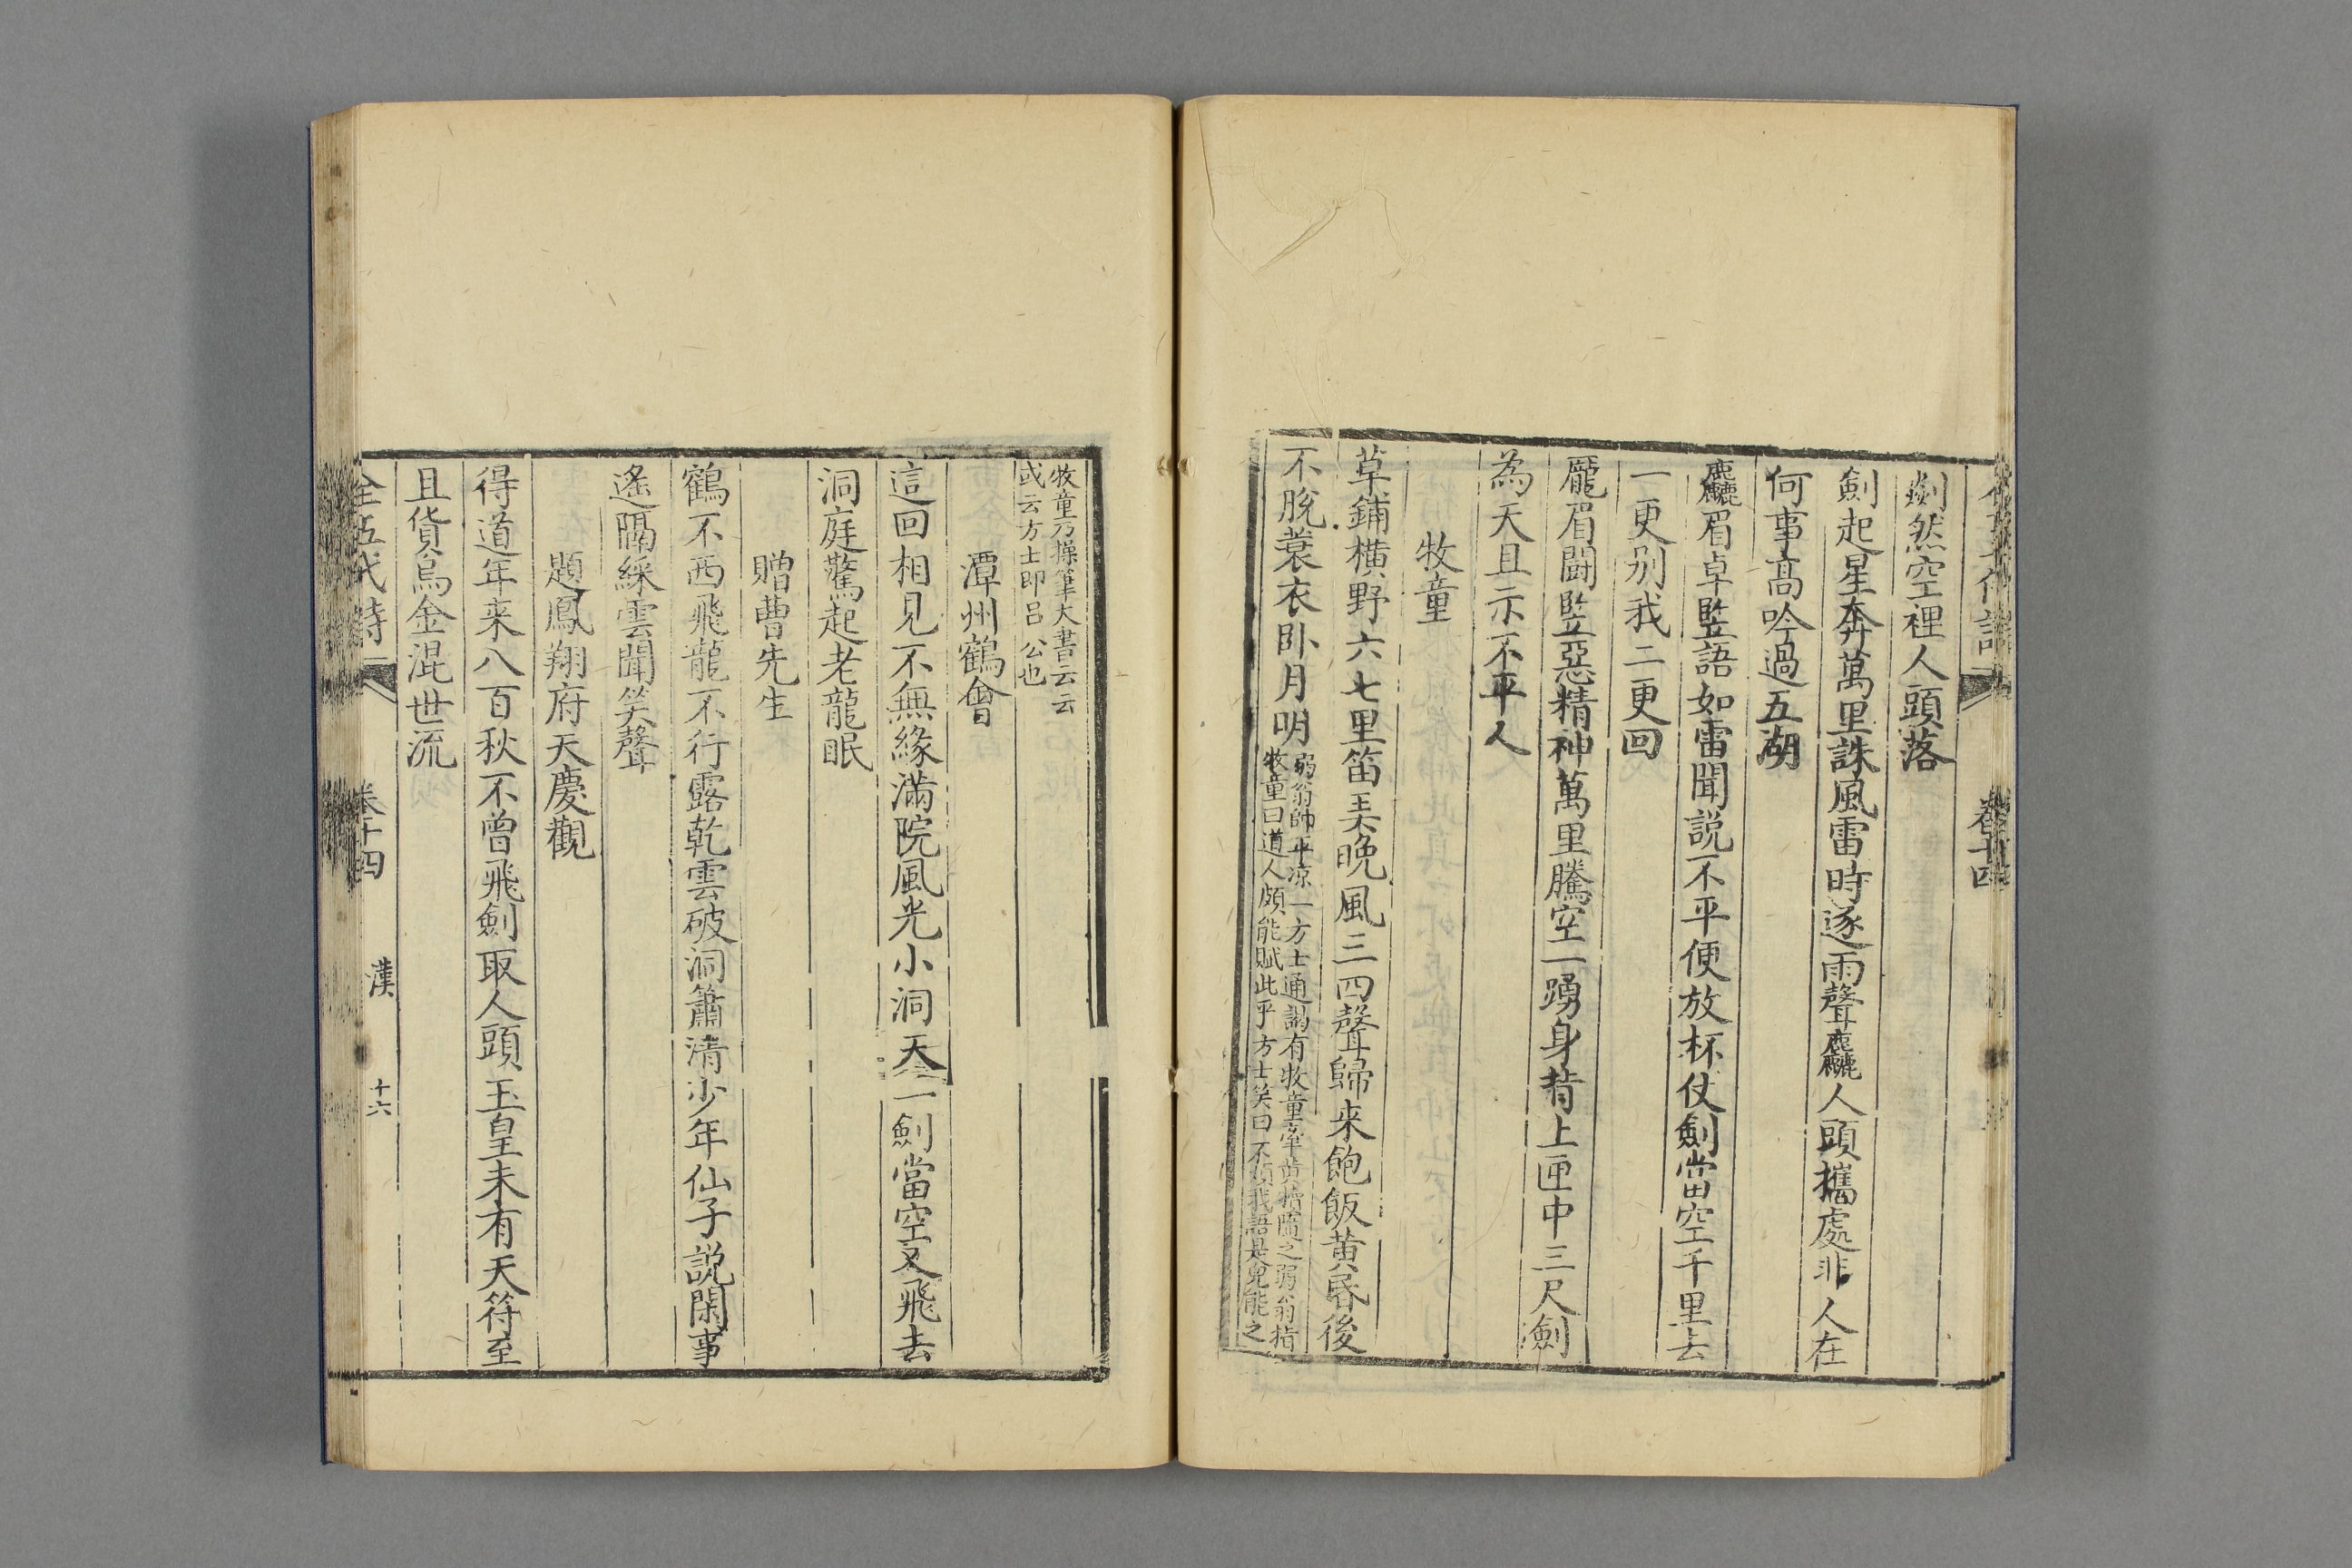 卷十四
劍然空裡人頭落
劍起星奔萬里誅風雷時逐雨聲麤人頭攜處非人在
何事高吟過五湖
麤眉卓竪語如雷聞説不平便放杯仗劍當空千里去
一更别我二更回
龎眉鬪竪惡精神萬里騰空一踴身背上匣中三尺劍
為天且示不平人
牧童
草鋪橫野六七里笛弄晚風三四聲歸来飽飯黃昏後
不脫蓑衣卧月明
弱翁帥平凉一方士通謁有牧童牽黃犢隨之弱翁指
牧童曰道人頗能賦此乎方士笑曰不須我語是兒能之
牧童乃操筆大書云云
或云方士即呂公也
潭州鶴會
這回相見不無緣滿院風光小洞天一劍當空又飛去
洞庭驚起老龍眠
贈曹先生
鶴不西飛龍不行露乾雲破洞簫清少年仙子説閑事
遙隔綵雲聞笑聲
題鳳翔府天慶觀
得道年来八百秋不曾飛劍取人頭玉皇未有天符至
且貨烏金混世流
全五代詩 卷十四 漢 十六